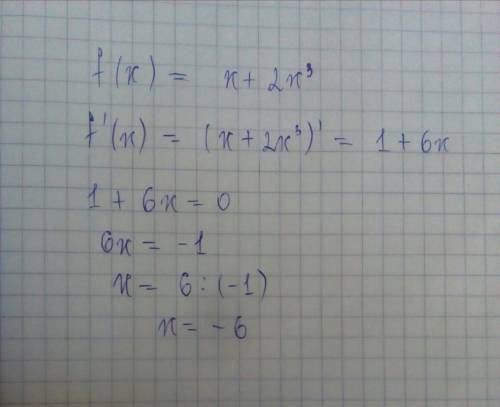 f(x) = x + 2x³
f'(x) = (x + 2x³)' = 1 + 6x
1 + 6x = 0
6x = -1
x = 6 : (-1)
x = -6